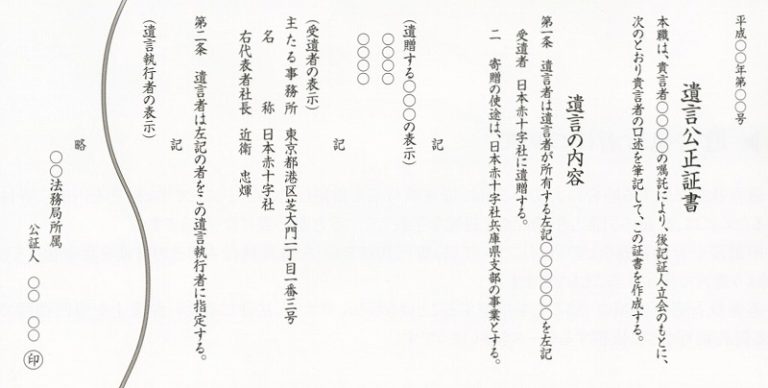 平成○○年第○○号
遺言公正証書
本職は、貴言者○○○○の嘱託により、後記証人立会のもとに、
次のとおり貴言者の口述を筆記して、この証書を作成する。
遺言の内容
第一条　遺言者は遺言者が所有する左記○○○○○を左記
受遺者　日本赤十字社に遺贈する。
二　寄贈の使途は、日本赤十字社兵庫県支部の事業とする。
記
（遺贈する○○○の表示）
○○○○
○○○○
記
（受遺者の表示）
主たる事務所　東京都港区芝大門一丁目一番三号
名　　　　称　日本赤十字社
右代表者社長　近衛　忠煇
第二条　遺言者は左記の者をこの遺言執行者に指定する。
記
（遺言執行者の表示）
略
○○法務局所属
公証人　○○　○○　印